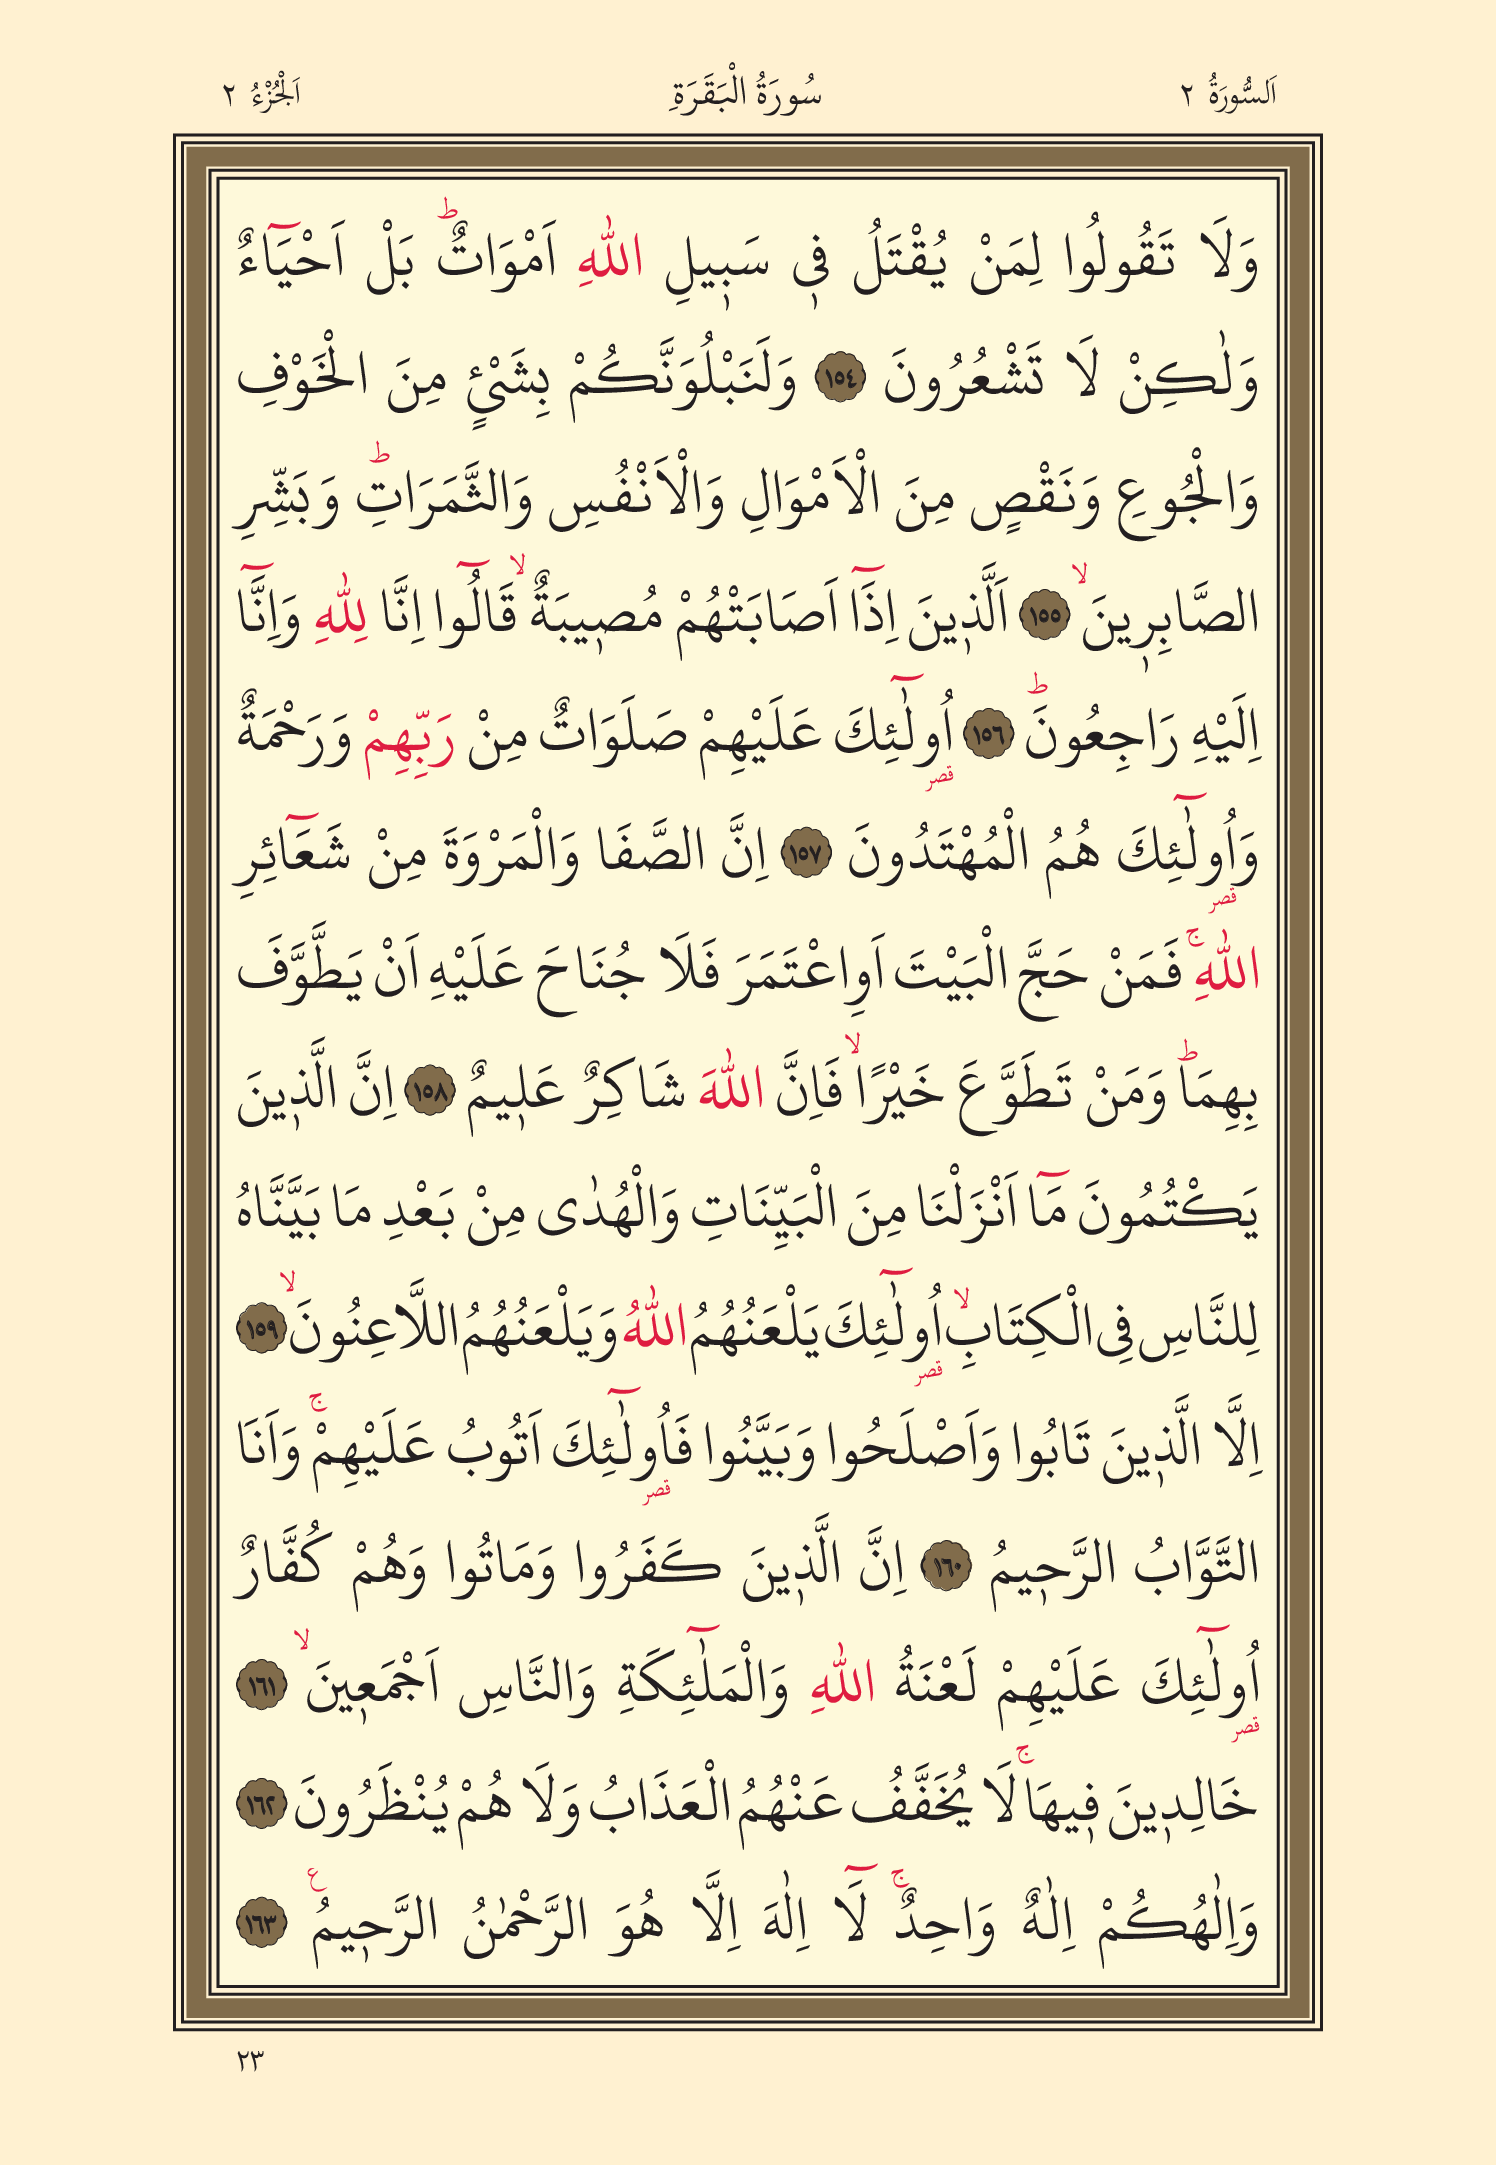 اَلسُّورَةُ ٢ سُورَةُ الْبَقَرَةِ اَلْجُزْءُ ٢
وَلَا تَقُولُوا لِمَنْ يُقْتَلُ ف۪ي سَب۪يلِ اللّٰهِ اَمْوَاتٌۜ بَلْ اَحْيَٓاءٌ
وَلٰكِنْ لَا تَشْعُرُونَ ﴿١٥٤﴾ وَلَنَبْلُوَنَّكُمْ بِشَيْءٍ مِنَ الْخَوْفِ
وَالْجُوعِ وَنَقْصٍ مِنَ الْاَمْوَالِ وَالْاَنْفُسِ وَالثَّمَرَاتِۜ وَبَشِّرِ
الصَّابِر۪ينَۙ ﴿١٥٥﴾ اَلَّذ۪ينَ اِذَٓا اَصَابَتْهُمْ مُص۪يبَةٌۙ قَالُٓوا اِنَّا لِلّٰهِ وَاِنَّٓا
اِلَيْهِ رَاجِعُونَۜ ﴿١٥٦﴾ اُو۬لٰٓئِكَ عَلَيْهِمْ صَلَوَاتٌ مِنْ رَبِّهِمْ وَرَحْمَةٌ
وَاُو۬لٰٓئِكَ هُمُ الْمُهْتَدُونَ ﴿١٥٧﴾ اِنَّ الصَّفَا وَالْمَرْوَةَ مِنْ شَعَٓائِرِ
اللّٰهِۚ فَمَنْ حَجَّ الْبَيْتَ اَوِاعْتَمَرَ فَلَا جُنَاحَ عَلَيْهِ اَنْ يَطَّوَّفَ
بِهِمَاۜ وَمَنْ تَطَوَّعَ خَيْرًاۙ فَاِنَّ اللّٰهَ شَاكِرٌ عَل۪يمٌ ﴿١٥٨﴾ اِنَّ الَّذ۪ينَ
يَكْتُمُونَ مَٓا اَنْزَلْنَا مِنَ الْبَيِّنَاتِ وَالْهُدٰى مِنْ بَعْدِ مَا بَيَّنَّاهُ
لِلنَّاسِ فِي الْكِتَابِۙ اُو۬لٰٓئِكَ يَلْعَنُهُمُ اللّٰهُ وَيَلْعَنُهُمُ اللَّاعِنُونَۙ ﴿١٥٩﴾
اِلَّا الَّذ۪ينَ تَابُوا وَاَصْلَحُوا وَبَيَّنُوا فَاُو۬لٰٓئِكَ اَتُوبُ عَلَيْهِمْۚ وَاَنَا
التَّوَّابُ الرَّح۪يمُ ﴿١٦٠﴾ اِنَّ الَّذ۪ينَ كَفَرُوا وَمَاتُوا وَهُمْ كُفَّارٌ
اُو۬لٰٓئِكَ عَلَيْهِمْ لَعْنَةُ اللّٰهِ وَالْمَلٰٓئِكَةِ وَالنَّاسِ اَجْمَع۪ينَۙ ﴿١٦١﴾
خَالِد۪ينَ ف۪يهَاۚ لَا يُخَفَّفُ عَنْهُمُ الْعَذَابُ وَلَا هُمْ يُنْظَرُونَ ﴿١٦٢﴾
وَاِلٰهُكُمْ اِلٰهٌ وَاحِدٌۚ لَٓا اِلٰهَ اِلَّا هُوَ الرَّحْمٰنُ الرَّح۪يمُ۟ ﴿١٦٣﴾
٢٣